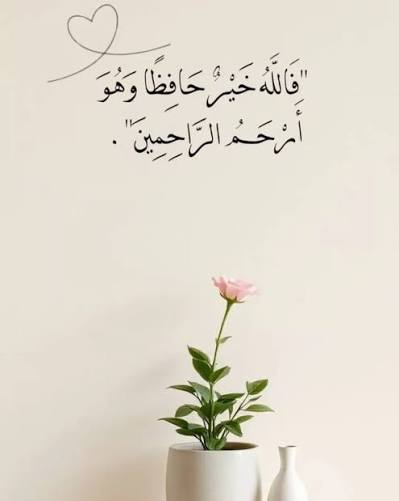 "فَاللَّهُ خَيْرٌ حَافِظًا وَهُوَ
أَرْحَمُ الرَّاحِمِينَ".